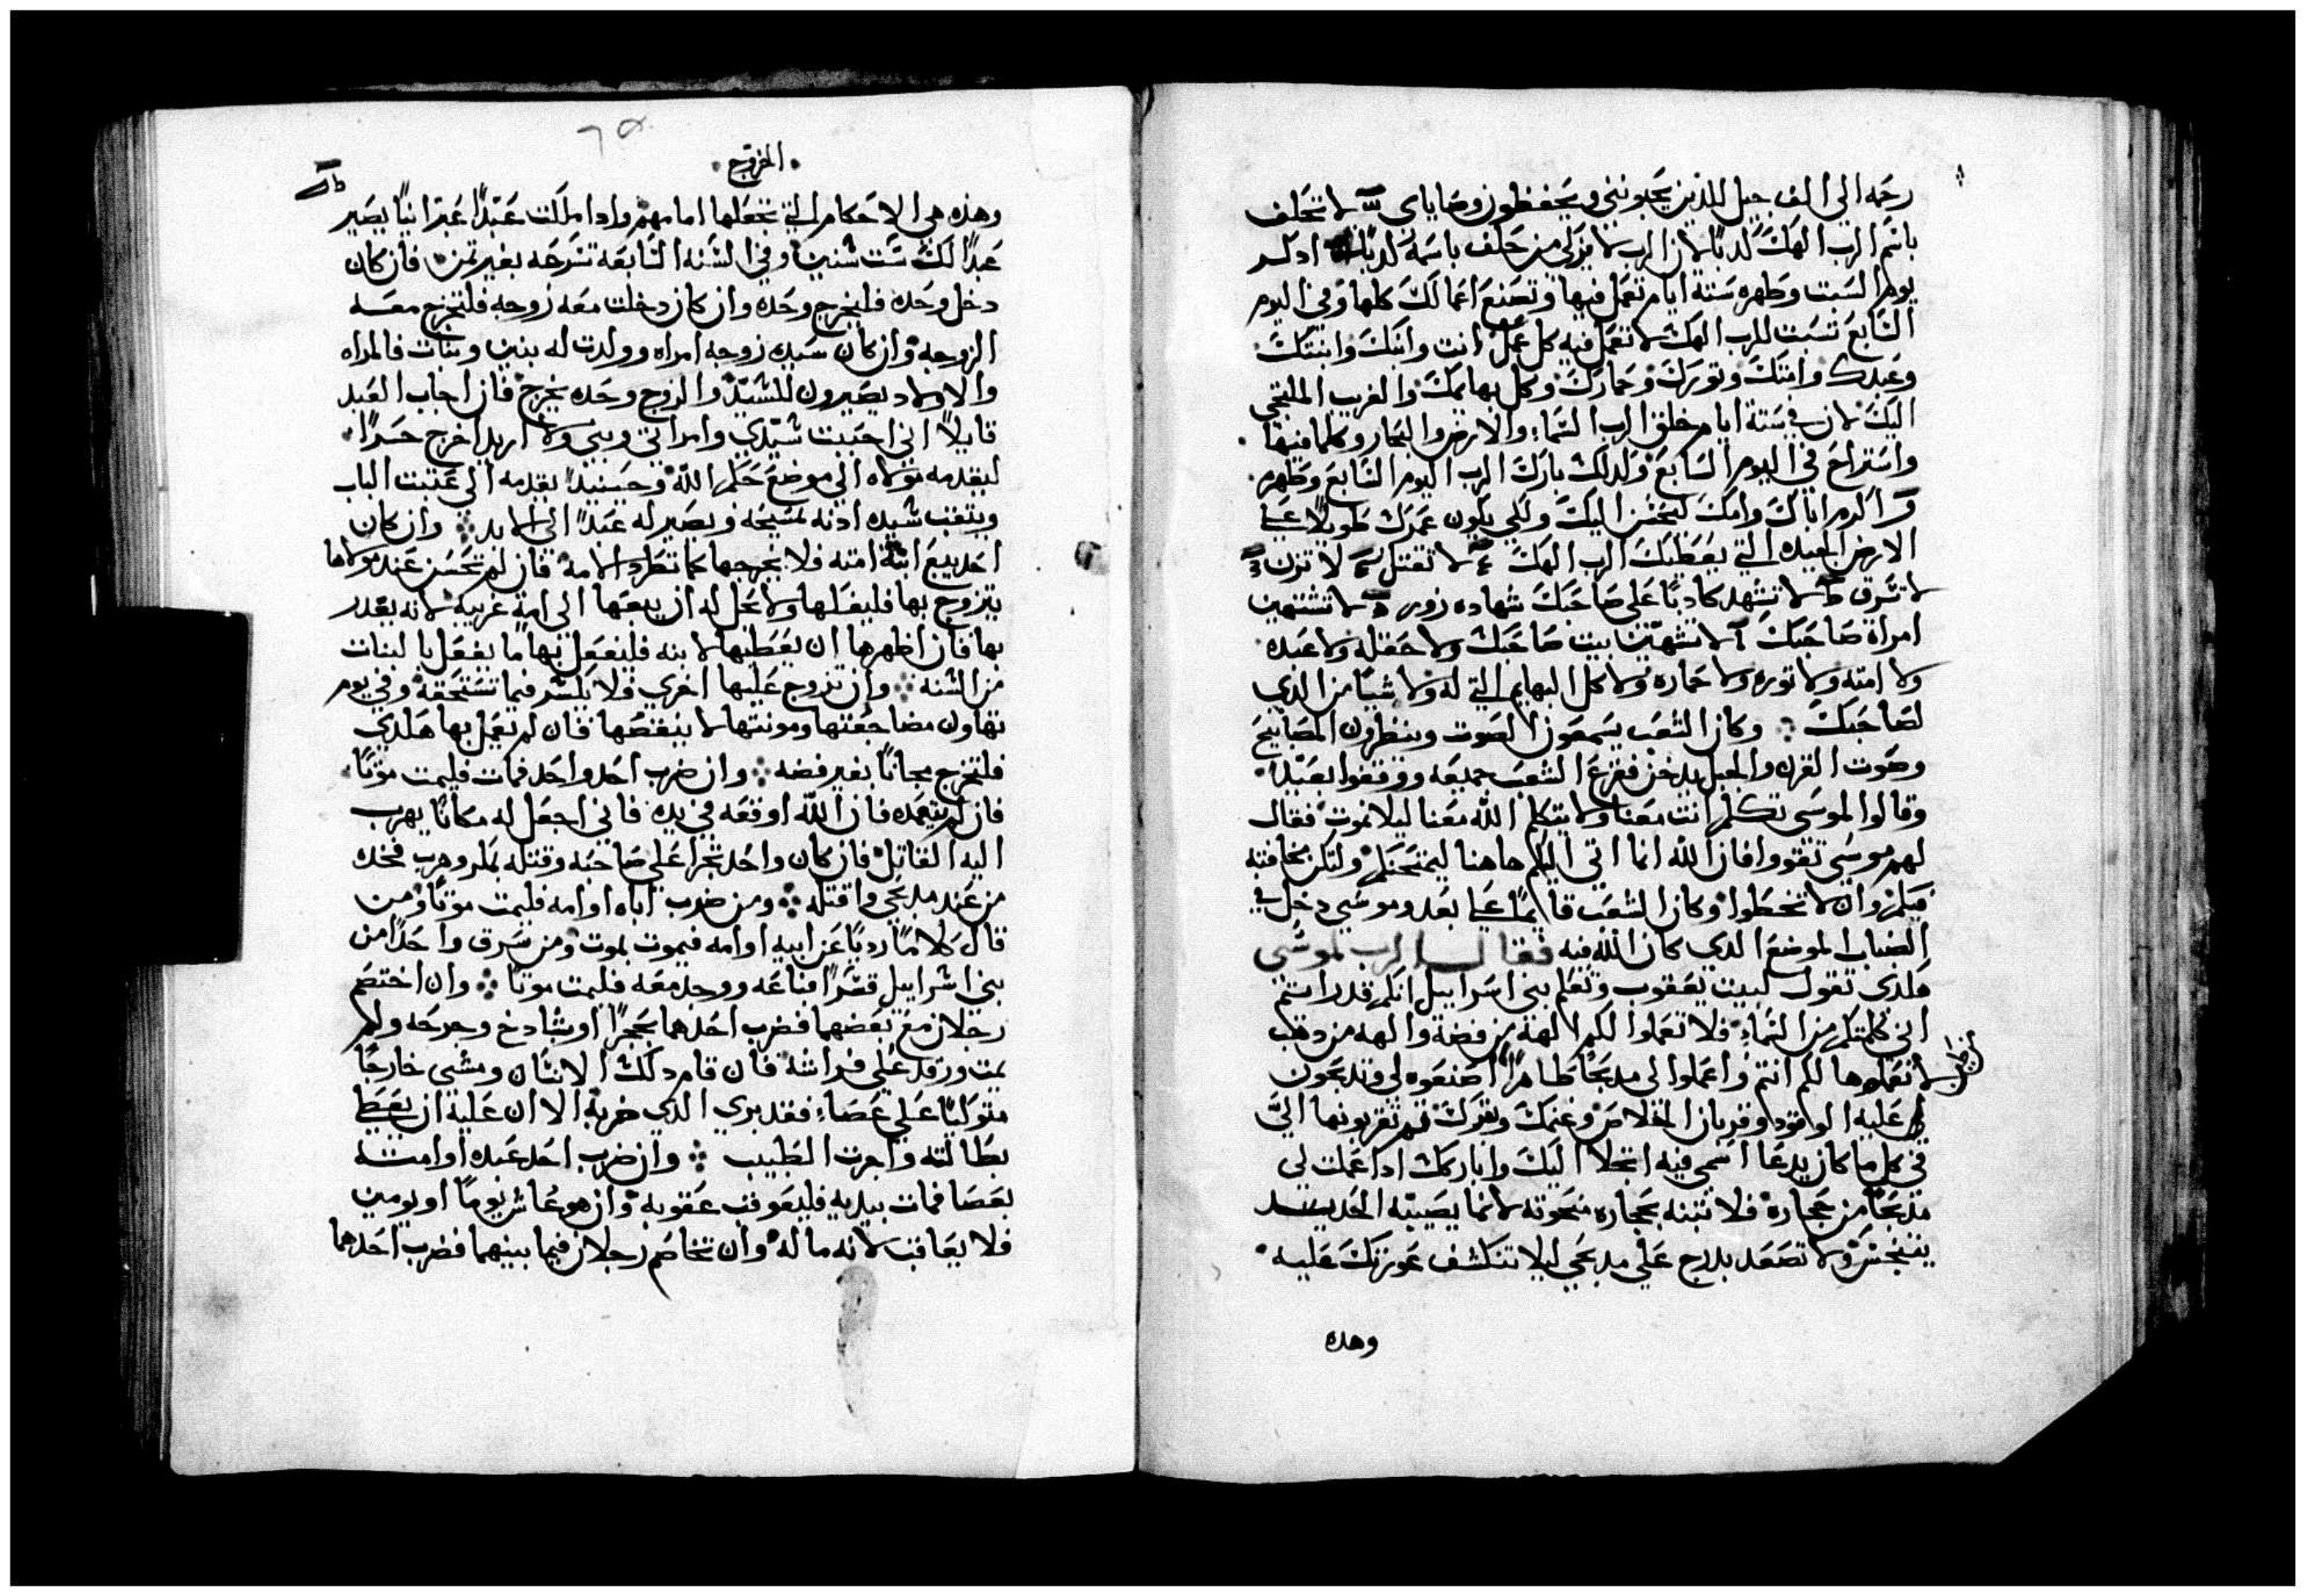 رحمه الي الف جيل للذين يحبونني ويحفظون وصاياي لا تحلف
باسم الرب الهك كدبًا لان الرب لا يزكي من حلف باسمه كدبًا ادكر
يوم السبت وطهره ستة ايام تعمل فيها وتصنع اعمالك كلها وفي اليوم
السابع تسبت للرب الهك لا تعمل فيه كل عمل انت وابنك وابنتك
وعبدك وامتك وتورك وحمارك وكل بهايمك والغريب الملتجي
اليك لان في ستة ايام خلق الرب السماء والارض والبحار وكلما فيها
واستراح في اليوم السابع ولدلك بارك الرب اليوم السابع وطهره
اكرم اباك وامك ليحسن اليك ولكي يكون عمرك طويلًا علي
الارض الجيده التي يعطيك الرب الهك لا تقتل لا تزن
لا تسرق لا تشهد كادبًا علي صاحبك شهاده زور لا تشتهين
امراة صاحبك لا تشتهين بيت صاحبك ولا حقله ولا عبده
ولا امته ولا توره ولا حماره ولا كل البهايم التي له ولا شيًا من الدي
لصاحبك وكان الشعب يسمعون الصوت وينظرون المصابيح
وصوت القرن والجبل يدخن ففزع الشعب جميعه ووقفوا بعيدًا
وقالوا لموسى تكلم انت معنا ولا يتكلم الله معنا ليلا نموت فقال
لهم موسى تقووا فان الله انما اتي اليكم هاهنا ليمتحنكم ولتكن مخافته
فيكم وان لا تخطوا وكان الشعب قايمًا علي بعد وموسي دخل في
الضباب لموضع الدي كان الله فيه فقال الرب لموسى
هكدي تقول لبيت يعقوب وتعلم بني اسراييل انكم قد رايتم
اني كلمتكم من السماء فلا تعملوا لكم الهة من فضة والهه من دهب
لا تعملوها لكم انتم واعملوا لي مدبحًا طاهرًا اصنعوه لي وتدبحون
عليه الواقود وقربان الخلاص وغنمك وبقرك تقربونها اليّ
في كل ما كان يدعا اسمي فيه اتجلا اليك واباركك ادا عملت لي
مدبحًا من حجاره فلا تبنه بحجاره منحوته لانما يصيبه الحديد
يتنجس ولا تصعد بدرج علي مدبحي ليلا تنكشف عورتك عليه
وهده
الخروج
وهذه هي الاحكام التي تجعلها امامهم وادا ملكت عبدًا عبرانيًا يصير
عبدًا لك ست سنين وفي السنه السابعه تسرحه بغير تمن فان كان
دخل وحده فليخرج وحده وان كان دخلت معه زوجه فلتخرج معه
الزوجه وان كان سيده زوجه امراه وولدت له بنين وبنات فالمراه
والاولاد يصيرون للسيّد والزوج وحده يخرج فان اجاب العبد
قايلًا اني احببت سيّدي وامراتي وبني ولا اريد اخرج حرًا
ليقدمه مولاه الي موضع حكم الله وحينيد يقدمه الي عتبت الباب
ويتقب سيده ادنه ويصير له عبدًا الي الابد وان كان
احد يبيع ابنته امته فلا يخرجها كما تطرد الامه فان لم تحسن عند مولاها
يتزوج بها فليفكها ولا يحل له ان يبيعها الي امة غريبه لانه يغدر
بها فان اظهرها ان يعطيها لابنه فليفعل بها ما يفعل بالبنات
من السنه وان تزوج عليها اخري فلا يكسر فيما تستحقه وفي يوم
تهاون مضاجعتها ومونتها لا ينقصها فان لم يعمل بها هكدي
فلتخرج مجانًا بغير فضه وان ضرب احد واحد فمات فليمت موتًا
فان لم يتعمده فان الله اوقعه في يده فاني اجعل له مكانًا يهرب
اليه القاتل فان كان واحد تجرا علي صاحبه وقتله بمكر وهرب فخده
من عند مدبحي واقتله ومن ضرب اباه او امه فليمت موتًا ومن
قال كلامًا رديًا عن ابيه او امه فيموت بموت ومن سرق واحدًا من
بني اسراييل قسرًا فباعه ووجد معه فليمت موتًا وان اختصم
رجلان مع بعضهما فضرب احدهما بحجرًا او بشادخ وجرحه ولم
يمت ورقد علي فراشه فان قام دلك الانسان ومشي خارجًا
متوكيًا علي عصاه فقد بري الدي ضربه الا ان عليه ان يعطي
بطالته واجرت الطبيب وان ضرب احد عبده او امته
بعصا فمات بيديه فليعوقب عقوبه وان هو عاش يومًا او يومين
فلا يعاقب لانه ماله وان تخاصم رجلان فيما بينهما فضرب احدهما